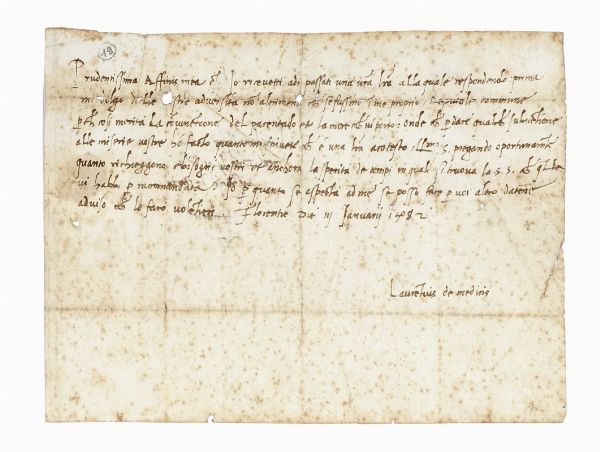 19
Prudentissima Affinis mea etc. Io ricevetti adi passati una vra lra alla quale respondendo prima
mi dolgo delle vostre adversita no altrimenti ch se fussino sute proprie
p ch cosi merita la coniunctione del parentado et lamore ch vi porto: onde ch p dare qualch
alle miserie vostre ho facto quanto ch e una lra a cotesto Illmo S. pregando oportunamte
quanto richieggono e bisogni vostri et anchora la sperita de tempi in quali si truova la S. S. ch
vi habbi p racomandata p quanto se aspecta ad me se posso fare p voi altro datene
adviso ch lo faro volentieri Florentie Die iij Januarij 1482
Laurentius de medicis